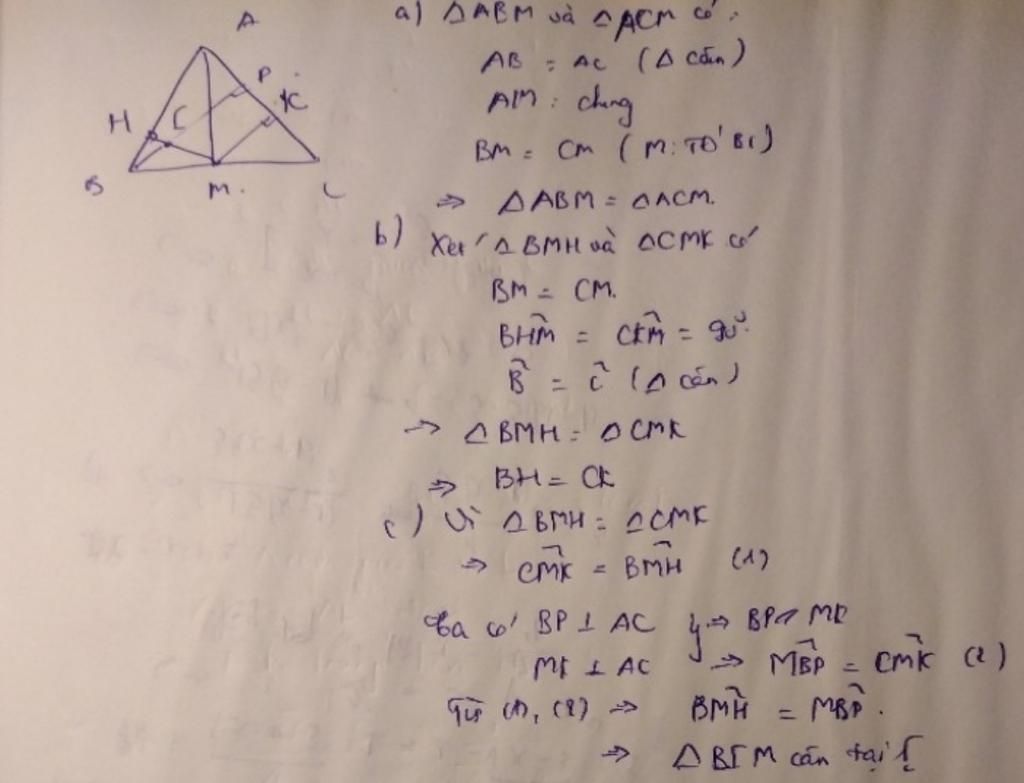 A
P
K
H
I
B
M.
C
a) ΔABM và ΔACM có:
AB = AC (Δ cân)
AM: chung
BM = CM (M: TĐ BC)
=> ΔABM = ΔACM.
b) Xét ΔBMH và ΔCMK có
BM = CM.
BHM̂ = CKM̂ = 90°
B̂ = Ĉ (Δ cân)
=> ΔBMH = ΔCMK
=> BH = CK
c) Vì ΔBMH = ΔCMK
=> CMK̂ = BMĤ (1)
Ta có BP ⊥ AC } => BP // MK
MK ⊥ AC => MBP̂ = CMK̂ (2)
Từ (1), (2) => BMĤ = MBP̂.
=> ΔBIM cân tại I